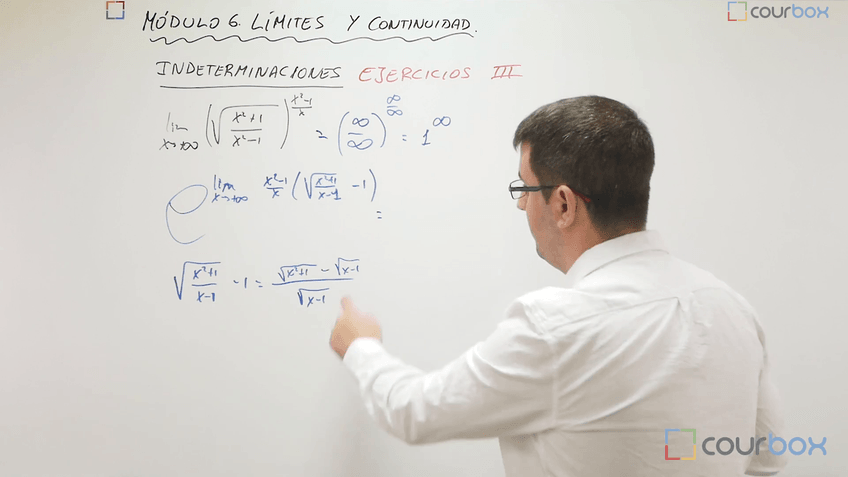 MÓDULO 6. LÍMITES Y CONTINUIDAD.
courbox
INDETERMINACIONES EJERCICIOS III
lim x→+∞ (√((x²+1)/(x²-1)))^((x²-1)/x) = (∞/∞)^(∞/∞) = 1^∞
e^(lim x→+∞ (x²-1)/x (√((x²+1)/(x-1)) - 1)) =
√((x²+1)/(x-1)) - 1 = (√(x²+1) - √(x-1))/√(x-1)
courbox